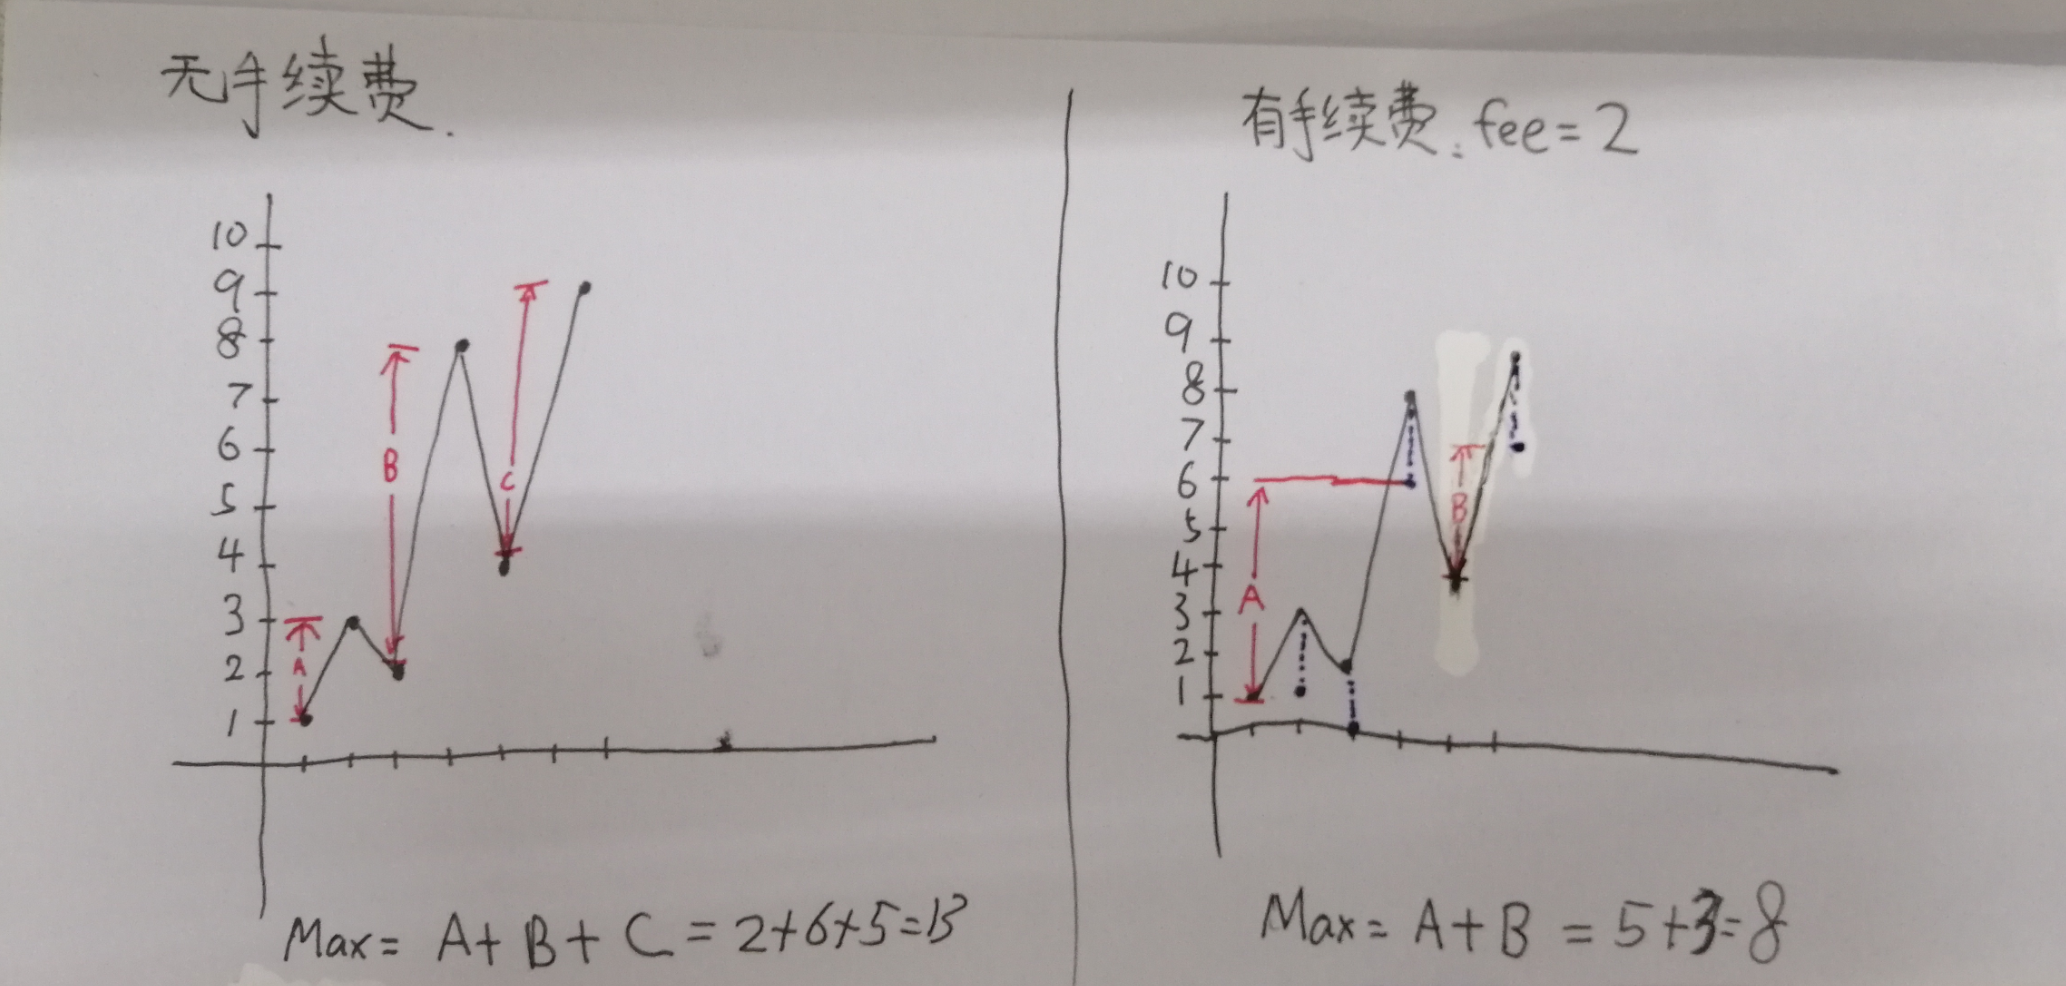 无手续费.
10
9
8
7
6
5
4
3
2
1
A
B
C
Max= A+B+C=2+6+5=13
有手续费. fee=2
10
9
8
7
6
5
4
3
2
1
A
B
Max= A+B=5+3=8